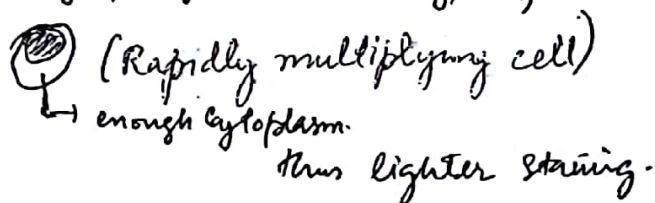 (Rapidly multiplying cell)
enough cytoplasm.
thus lighter staining.